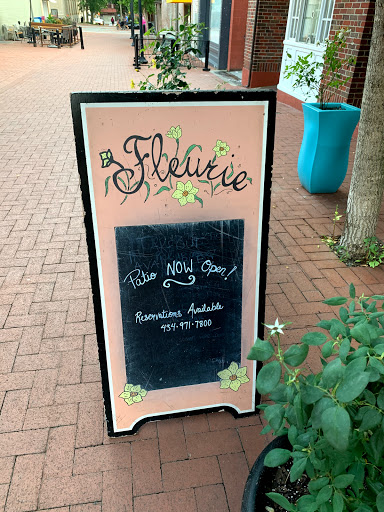 Fleurie
Patio NOW Open!
Reservations Available
434-971-7800